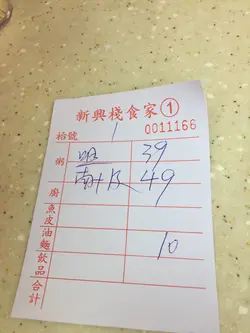 新興棧食家①
枱號 1 0011166
粥 39
廚 49
魚皮
油麵 10
飲品
合計